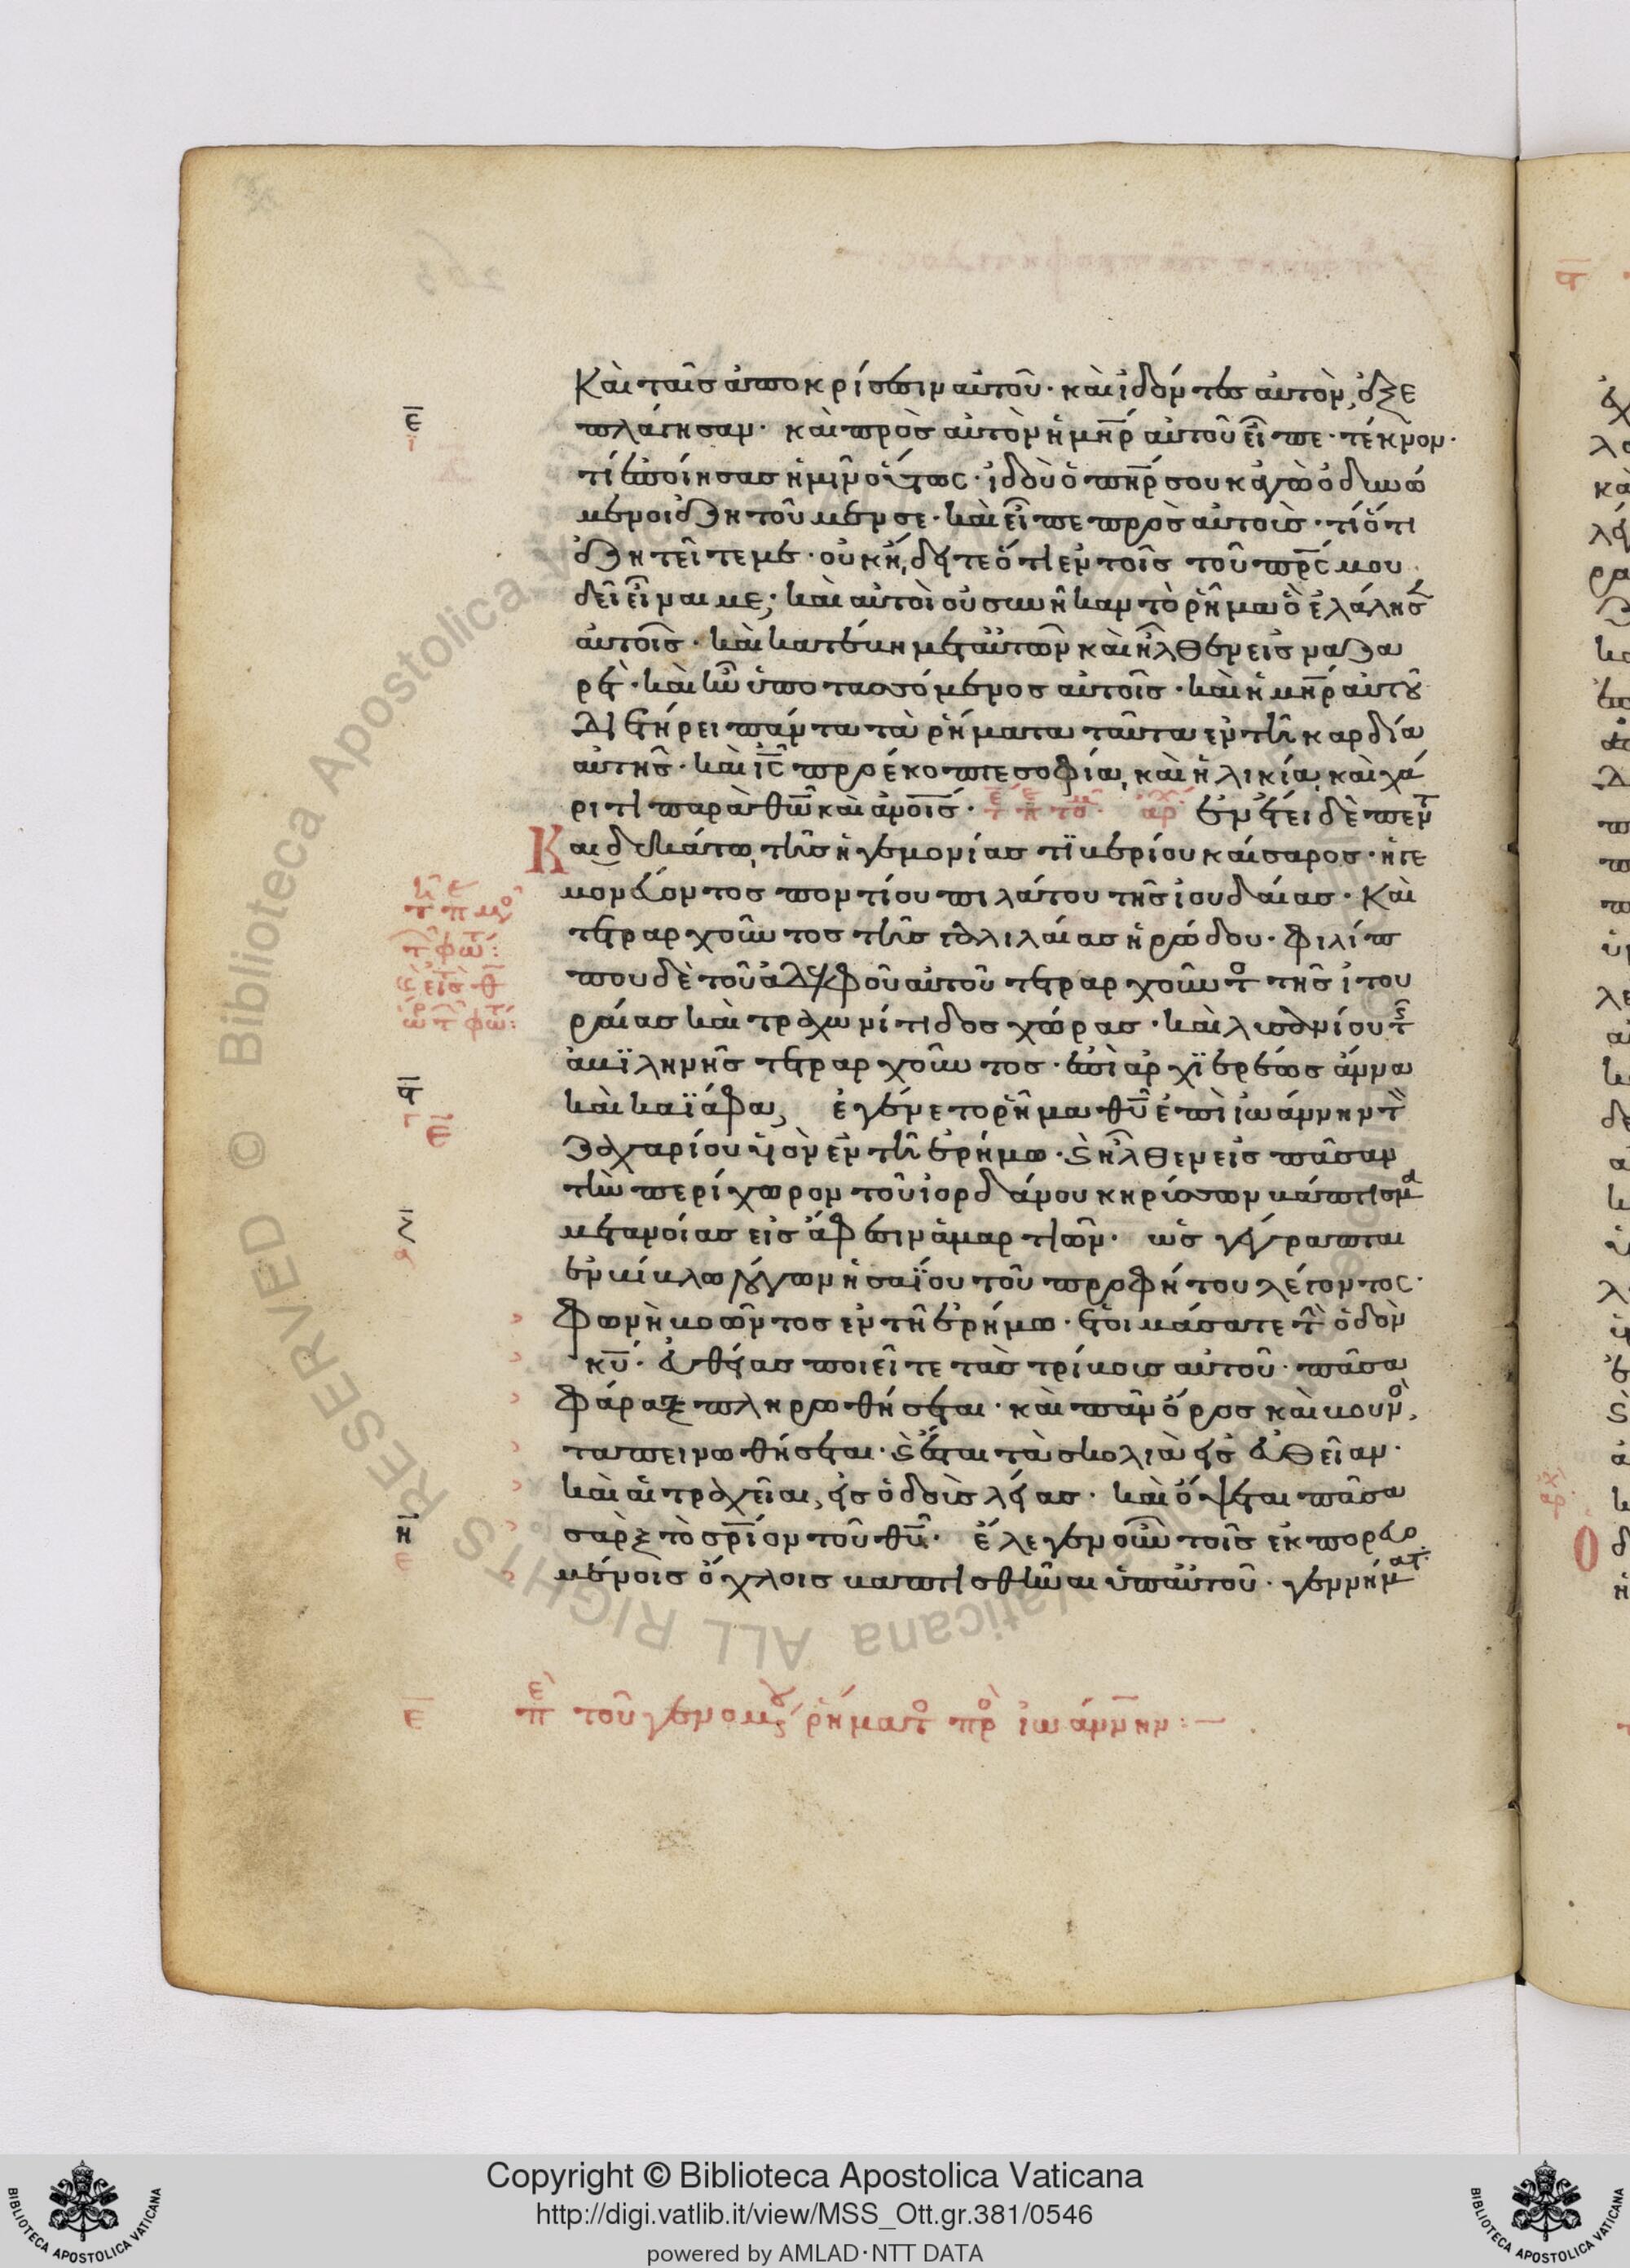 Καὶ ταῖς ἀποκρίσεσιν αὐτοῦ· καὶ ἰδόντες αὐτὸν, ἐξε
πλάγησαν· καὶ πρὸς αὐτὸν ἡ μη̅ρ αὐτοῦ εἶπε· τέκνον·
τί ἐποίησας ἡμῖν οὕτως· ἰδοὺ ὁ πη̅ρ σου κἀγὼ ὀδυνώ
μενοι ἐζητοῦμέν σε· καὶ εἶπε πρὸς αὐτούς· τί ὅτι
ἐζητεῖτέ με· οὐκ ἤ,δειτε ὅτι ἐν τοῖς τοῦ πρ̅ς μου
δεῖ εἶναι με; καὶ αὐτοὶ οὐ συνῆκαν τὸ ῥῆμα ὃ ἐλάλησ
αὐτοῖς· καὶ κατέβη μετ' αὐτῶν καὶ ἦλθεν εἰς ναζα
ρέτ· καὶ ἦν ὑποτασσόμενος αὐτοῖς· καὶ ἡ μη̅ρ αὐτοῦ
διετήρει πάντα τὰ ῥήματα ταῦτα ἐν τῇ καρδία
αὐτῆς· καὶ ι̅ς προέκοπτε σοφία, καὶ ἡλικία, καὶ χά
ριτι παρὰ θω̅ καὶ ἀν̅οις· ἐν ἔτει δὲ πεντ
Και δεκάτω, τῆς ἡγεμονίας τιβερίου καίσαρος· ἡγε
μονεύοντος ποντίου πιλάτου τῆς ἰουδαίας· Καὶ
τετραρχοῦντος τῆς γαλιλαίας ἡρώδου· φιλίπ
που δὲ τοῦ ἀδελφοῦ αὐτοῦ τετραρχοῦντο τῆς ἰτου
ραίας καὶ τραχωνίτιδος χώρας· καὶ λυσανίου τ
ἀβιληνῆς τετραρχοῦντος· ἐπὶ ἀρχιερέως ἄννα
καὶ καϊάφα, ἐγένετο ῥῆμα θυ̅ ἐπὶ ἰωάννην τ
ζαχαρίου υἱὸν ἐν τῇ ἐρήμω· ϗ ἦλθεν εἰς πᾶσαν
τὴν περίχωρον τοῦ ἰορδάνου κηρύσσων βάπτισμα
μετανοίας εἰς ἄφεσιν ἁμαρτιῶν· ὡς γέγραπται
ἐν βίβλω λόγων ἡσαΐου τοῦ προφήτου λέγοντος·
φωνὴ βοῶντος ἐν τῇ ἐρήμω· ἑτοιμάσατε τ ὁδὸν
κυ̅· εὐθείας ποιεῖτε τὰς τρίβους αὐτοῦ· πᾶσα
φάραξ πληρωθήσεται· καὶ πᾶν ὄρος καὶ βουνὸ,
ταπεινωθήσεται· ϗ ἔσται τὰ σκολιὰ εἰς εὐθεῖαν·
καὶ αἱ τραχεῖαι, εἰς ὁδοὺς λείας· καὶ ὄψεται πᾶσα
σὰρξ τὸ σρ̅ίον τοῦ θυ̅· ἔλεγεν οὖν τοῖς ἐκπορευο
μένοις ὄχλοις βαπτισθῆναι ὑπ' αὐτοῦ· γεννήματ
ε̅ πε τοῦ γενομένου ῥήματο προ ἰωάννην:—
Copyright © Biblioteca Apostolica Vaticana
http://digi.vatlib.it/view/MSS_Ott.gr.381/0546
powered by AMLAD·NTT DATA